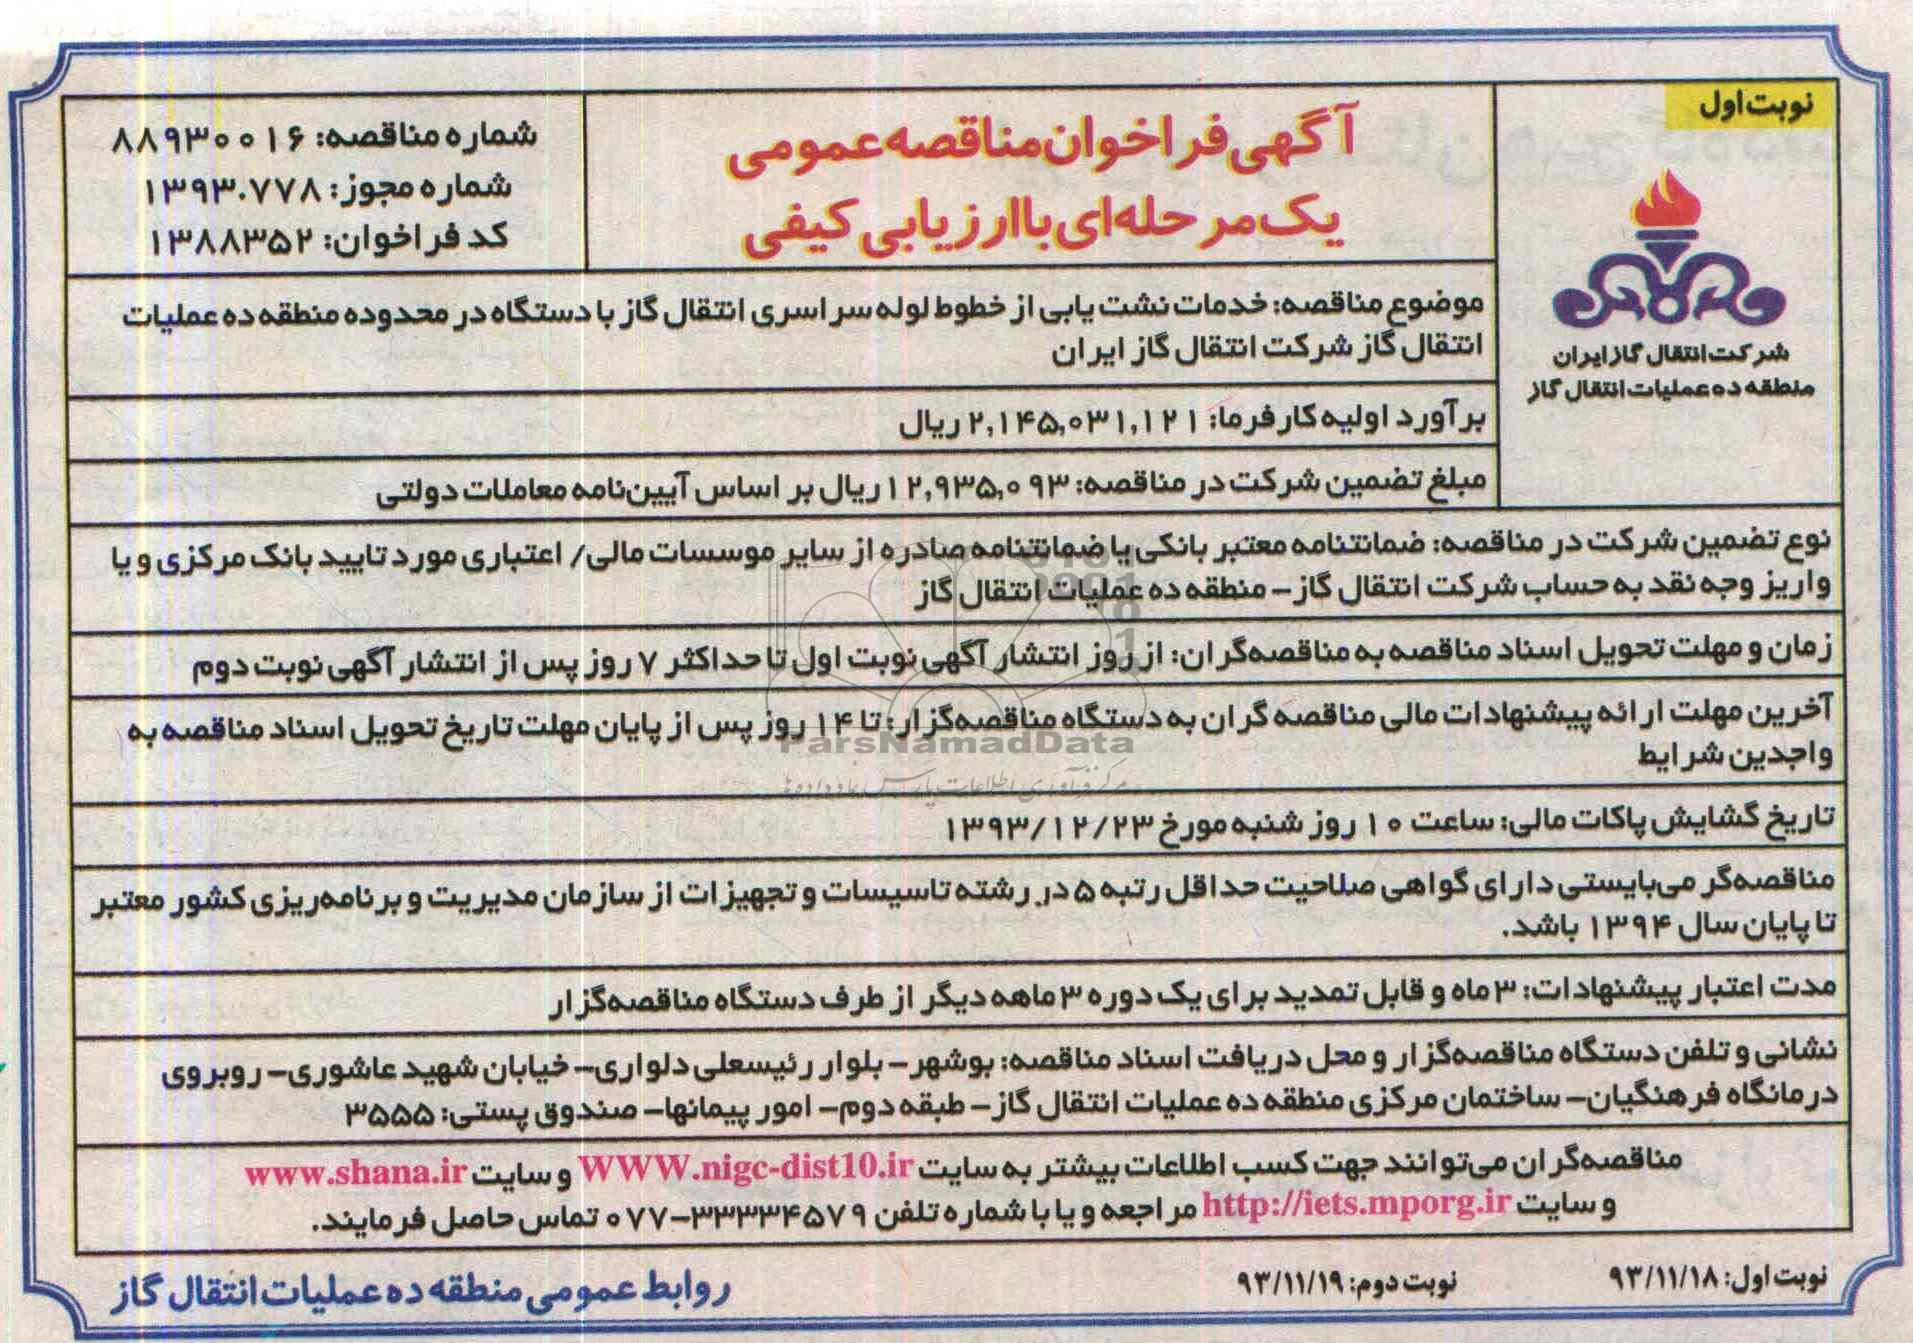 نوبت اول
آگهی فراخوان مناقصه عمومی
یک مرحله‌ای با ارزیابی کیفی
شماره مناقصه: ۸۸۹۳۰۰۱۶
شماره مجوز: ۱۳۹۳.۷۷۸
کد فراخوان: ۱۳۸۸۳۵۲
شرکت انتقال گاز ایران
منطقه ده عملیات انتقال گاز
موضوع مناقصه: خدمات نشت یابی از خطوط لوله سراسری انتقال گاز با دستگاه در محدوده منطقه ده عملیات
انتقال گاز شرکت انتقال گاز ایران
برآورد اولیه کارفرما: ۲,۱۴۵,۰۳۱,۱۲۱ ریال
مبلغ تضمین شرکت در مناقصه: ۱۲,۹۳۵,۰۹۳ ریال بر اساس آیین‌نامه معاملات دولتی
نوع تضمین شرکت در مناقصه: ضمانتنامه معتبر بانکی یا ضمانتنامه صادره از سایر موسسات مالی/ اعتباری مورد تایید بانک مرکزی و یا
واریز وجه نقد به حساب شرکت انتقال گاز – منطقه ده عملیات انتقال گاز
زمان و مهلت تحویل اسناد مناقصه به مناقصه‌گران: از روز انتشار آگهی نوبت اول تا حداکثر ۷ روز پس از انتشار آگهی نوبت دوم
آخرین مهلت ارائه پیشنهادات مالی مناقصه گران به دستگاه مناقصه‌گزار: تا ۱۴ روز پس از پایان مهلت تاریخ تحویل اسناد مناقصه به
واجدین شرایط
ParsNamadData
مرکز فرآوری اطلاعات پارس نماد داده ها
تاریخ گشایش پاکات مالی: ساعت ۱۰ روز شنبه مورخ ۱۳۹۳/۱۲/۲۳
مناقصه‌گر می‌بایستی دارای گواهی صلاحیت حداقل رتبه ۵ در رشته تاسیسات و تجهیزات از سازمان مدیریت و برنامه‌ریزی کشور معتبر
تا پایان سال ۱۳۹۴ باشد.
مدت اعتبار پیشنهادات: ۳ ماه و قابل تمدید برای یک دوره ۳ ماهه دیگر از طرف دستگاه مناقصه‌گزار
نشانی و تلفن دستگاه مناقصه‌گزار و محل دریافت اسناد مناقصه: بوشهر – بلوار رئیسعلی دلواری – خیابان شهید عاشوری – روبروی
درمانگاه فرهنگیان – ساختمان مرکزی منطقه ده عملیات انتقال گاز – طبقه دوم – امور پیمانها – صندوق پستی: ۳۵۵۵
مناقصه‌گران می‌توانند جهت کسب اطلاعات بیشتر به سایت WWW.nigc-dist10.ir و سایت www.shana.ir
و سایت http://iets.mporg.ir مراجعه و یا با شماره تلفن ۳۳۳۳۴۵۷۹-۰۷۷ تماس حاصل فرمایند.
نوبت اول: ۹۳/۱۱/۱۸
نوبت دوم: ۹۳/۱۱/۱۹
روابط عمومی منطقه ده عملیات انتقال گاز